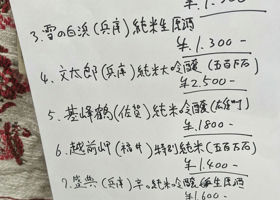 3. 雪の白浜 (兵庫) 純米生原酒
¥1.300-
4. 文太郎 (兵庫) 純米大吟醸 (五百万石)
¥2.500-
5. 基峰鶴 (佐賀) 純米吟醸 (雄町)
¥.1800-
6. 越前岬 (福井) 特別純米 (五百万石)
¥1.400-
7. (兵庫) 辛口純米吟醸 生原酒
¥1.600-